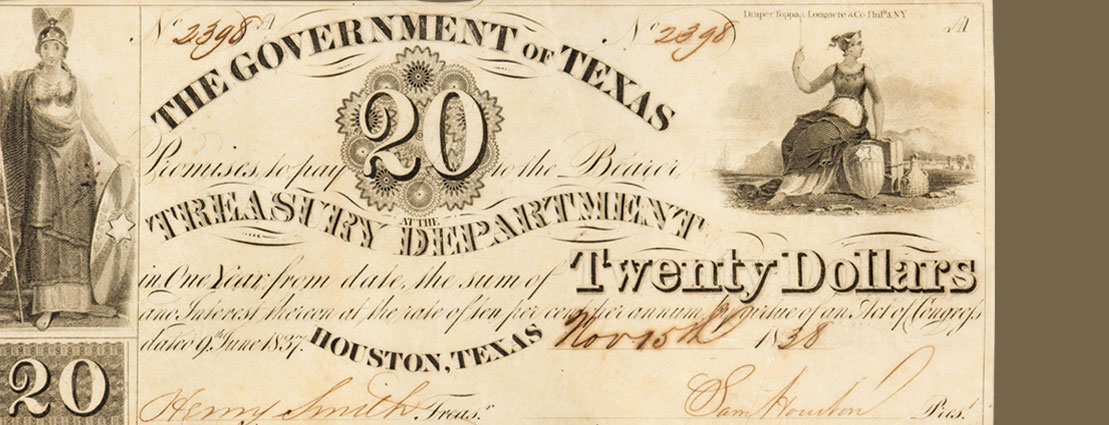 Draper, Toppan, Longacre & Co. Phila. & NY
No 2398 A No 2398 A
THE GOVERNMENT OF TEXAS
20
Promises to pay to the Bearer
AT THE
TREASURY DEPARTMENT
in One Year from date, the sum of Twenty Dollars
and Interest thereon at the rate of ten per cent per annum, by virtue of an Act of Congress
dated 9th June 1837. HOUSTON, TEXAS Nov 15th 1838
20
Henry Smith Treas.r Sam Houston Pres.t